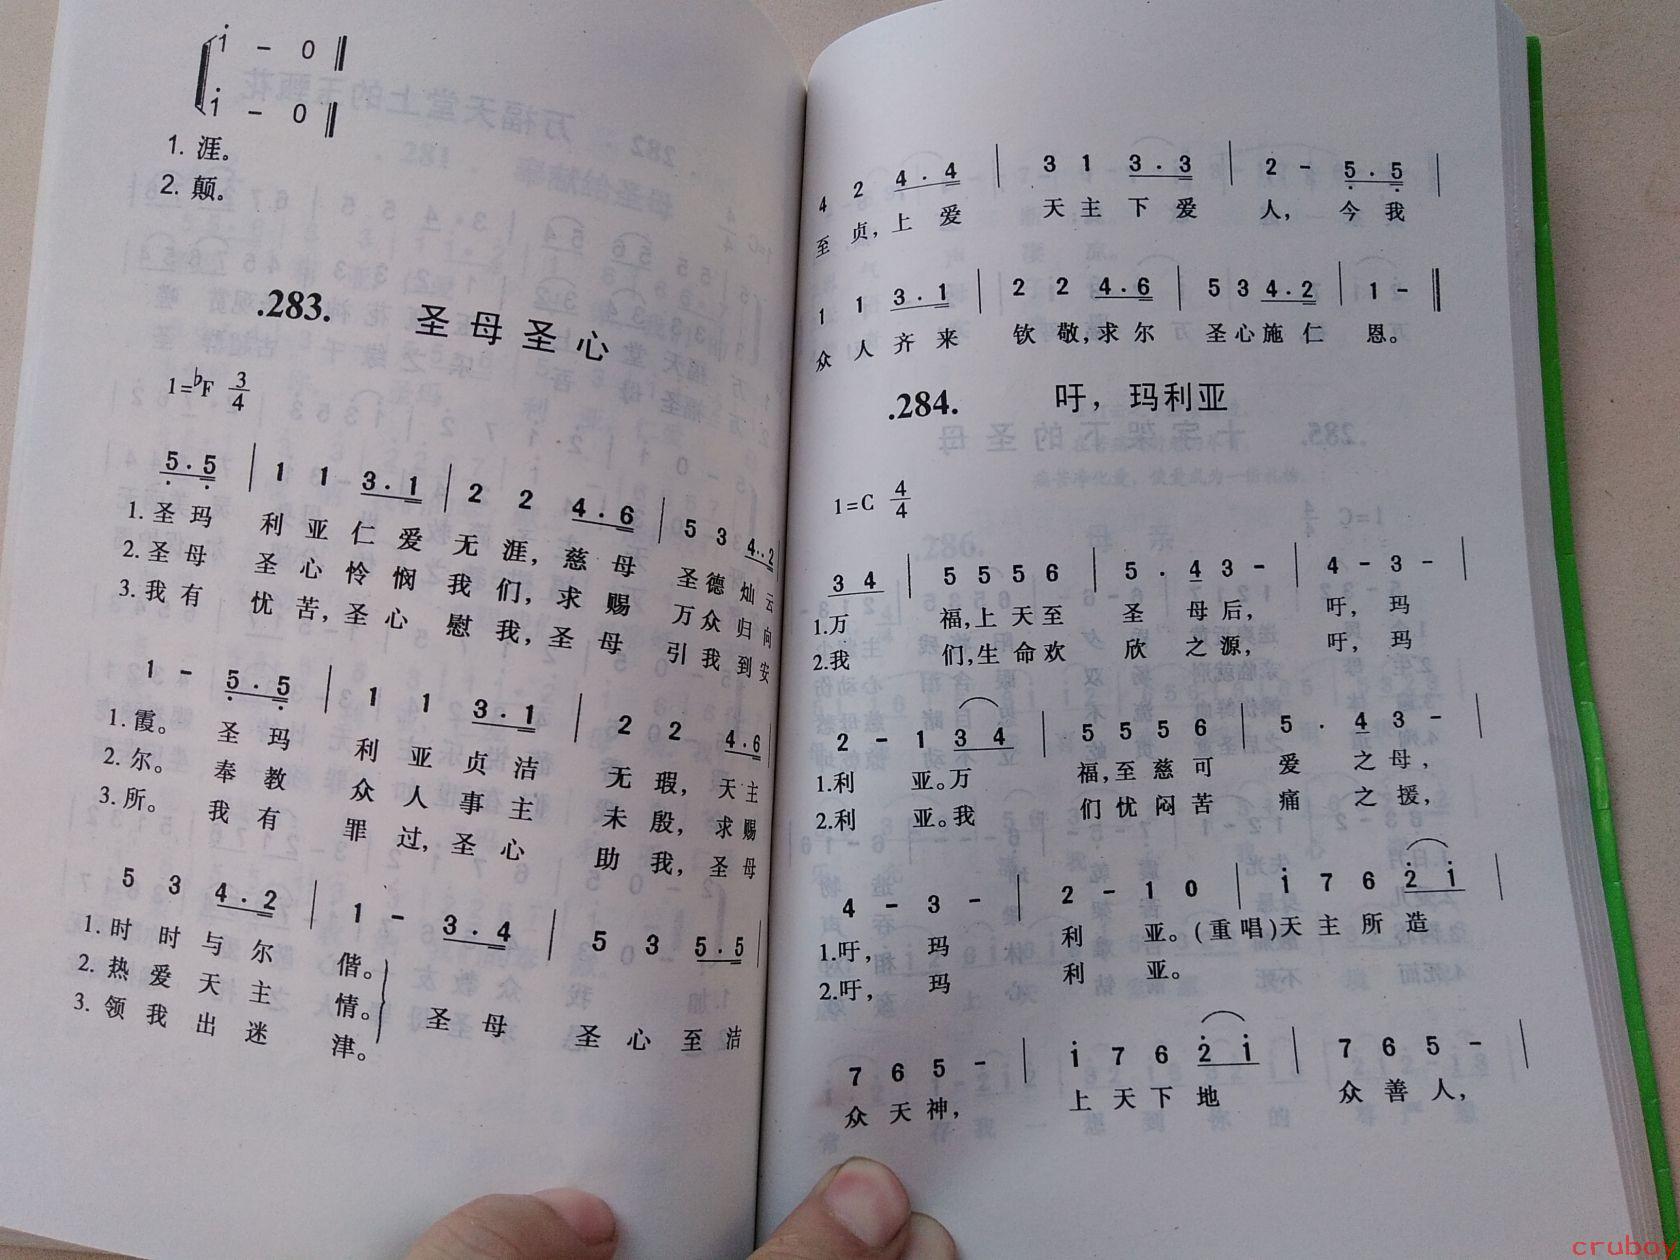 i - 0 ‖
i - 0 ‖
1. 涯。
2. 颠。
.283. 圣母圣心
1=♭F 3/4
5·5 | 1 1 3·1 | 2 2 4·6 | 5 3 4··2 |
1.圣玛 利亚仁爱 无涯,慈母 圣德灿云
2.圣母 圣心怜悯 我们,求赐 万众归向
3.我有 忧苦,圣心 慰我,圣母 引我到安
1 - 5·5 | 1 1 3·1 | 2 2 4·6 |
1.霞。 圣玛 利亚贞洁 无瑕,天主
2.尔。 奉教 众人事主 未殷,求赐
3.所。 我有 罪过,圣心 助我,圣母
5 3 4·2 | 1 - 3·4 | 5 3 5·5 |
1.时时与尔 偕。
2.热爱天主 情。 圣母 圣心至洁
3.领我出迷 津。
4 2 4·4 | 3 1 3·3 | 2 - 5·5 |
至贞,上爱 天主下爱 人, 今我
1 1 3·1 | 2 2 4·6 | 5 3 4·2 | 1 - ‖
众人齐来 钦敬,求尔 圣心施仁 恩。
.284. 吁,玛利亚
1=C 4/4
3 4 | 5 5 5 6 | 5 · 4 3 - | 4 - 3 - |
1.万 福,上天至 圣 母后, 吁, 玛
2.我 们,生命欢 欣 之源, 吁, 玛
2 - 1 3 4 | 5 5 5 6 | 5 · 4 3 - |
1.利 亚。万 福,至慈可 爱 之母,
2.利 亚。我 们忧闷苦 痛 之援,
4 - 3 - | 2 - 1 0 | i 7 6 2 i |
1.吁, 玛 利 亚。(重唱)天主所造
2.吁, 玛 利 亚。
7 6 5 - | i 7 6 2 i | 7 6 5 - |
众天神, 上天下地 众善人,
cruboy